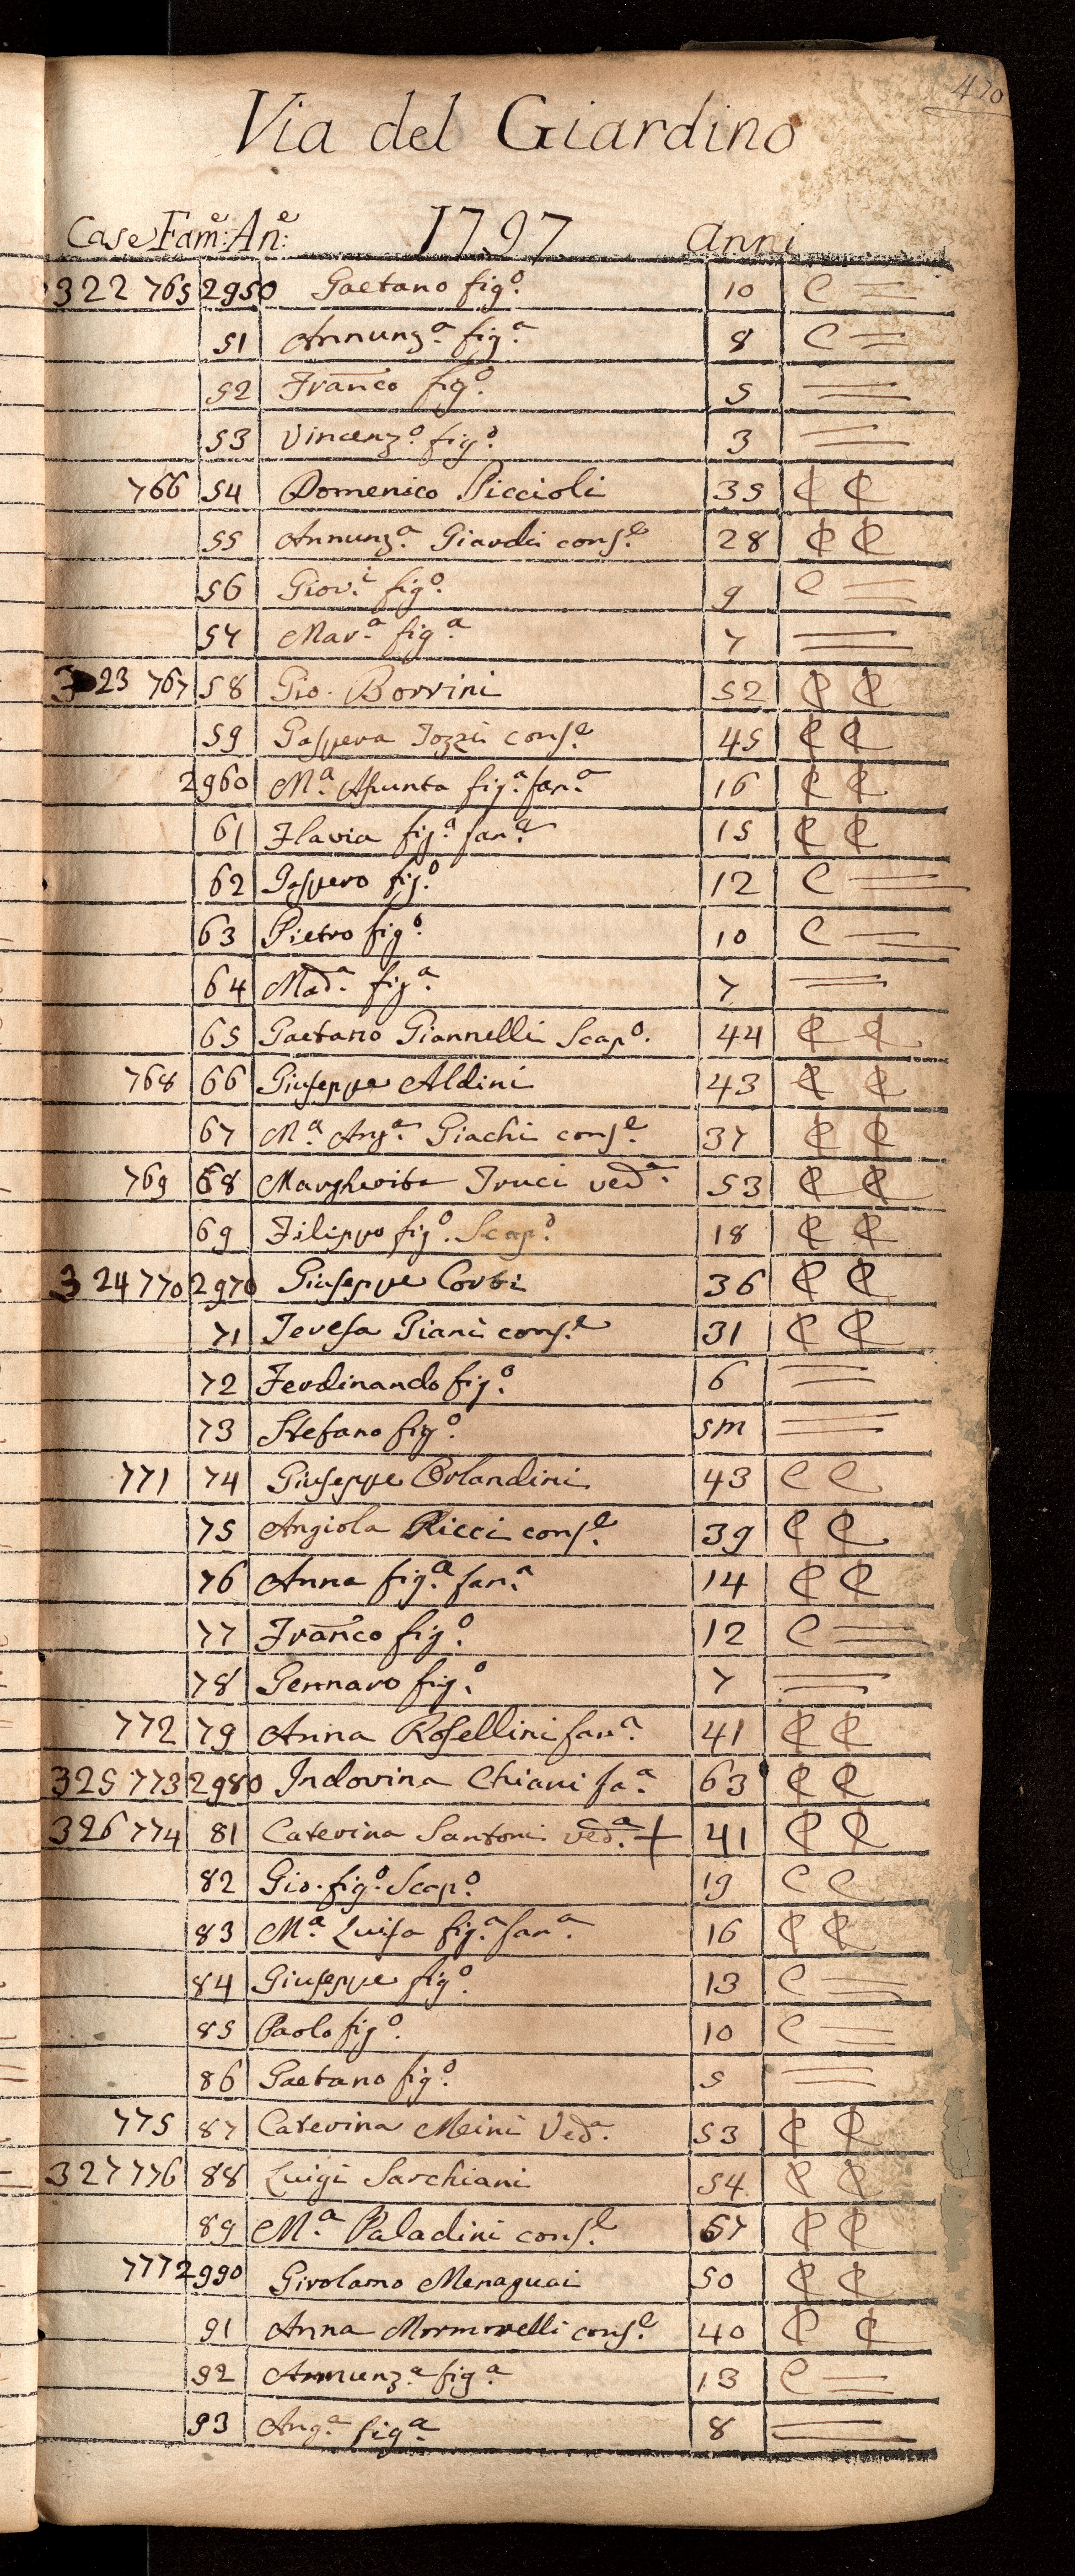 470
Via del Giardino
Case Fam:e An:e 1797 anni
322 765 2950 Gaetano fig.o 10 C =
51 Annunz.a fig.a 8 C =
52 Franco fig.o 5 =
53 Vincenz.o fig.o 3 =
766 54 Domenico Piccioli 35 C C
55 Annunz.a Giardi cons.e 28 C C
56 Giov.i fig.o 9 C =
57 Mar.a fig.a 7 =
323 767 58 Gio. Borrini 52 C C
59 Gaspera Tozzi cons.e 45 C C
2960 M.a Asunta fig.a fan.a 16 C C
61 Flavia fig.a fan.a 15 C C
62 Gaspero fig.o 12 C =
63 Pietro fig.o 10 C =
64 Mad.a fig.a 7 =
65 Gaetano Giannelli Scap.o 44 C C
768 66 Giuseppe Aldini 43 C C
67 M.a Ang.a Giachi cons.e 37 C C
769 68 Margherita Truci ved.a 53 C C
69 Filippo fig.o Scap.o 18 C C
324 770 2970 Giuseppe Corbi 36 C C
71 Teresa Giani cons.e 31 C C
72 Ferdinando fig.o 6 =
73 Stefano fig.o 5m =
771 74 Giuseppe Orlandini 43 C C
75 Angiola Ricci cons.e 39 C C
76 Anna fig.a fan.a 14 C C
77 Franco fig.o 12 C =
78 Gennaro fig.o 7 =
772 79 Anna Rosellini fan.a 41 C C
325 773 2980 Indovina Chiani fa.a 63 C C
326 774 81 Caterina Santoni ved.a + 41 C C
82 Gio. fig.o Scap.o 19 C C
83 M.a Luisa fig.a fan.a 16 C C
84 Giuseppe fig.o 13 C =
85 Paolo fig.o 10 C =
86 Gaetano fig.o 5 =
775 87 Caterina Meini Ved.a 53 C C
327 776 88 Luigi Sarchiani 54 C C
89 M.a Paladini cons.e 57 C C
777 2990 Girolamo Menaguai 50 C C
91 Anna Mormorelli cons.e 40 C C
92 Annunz.a fig.a 13 C =
93 Ang.a fig.a 8 =